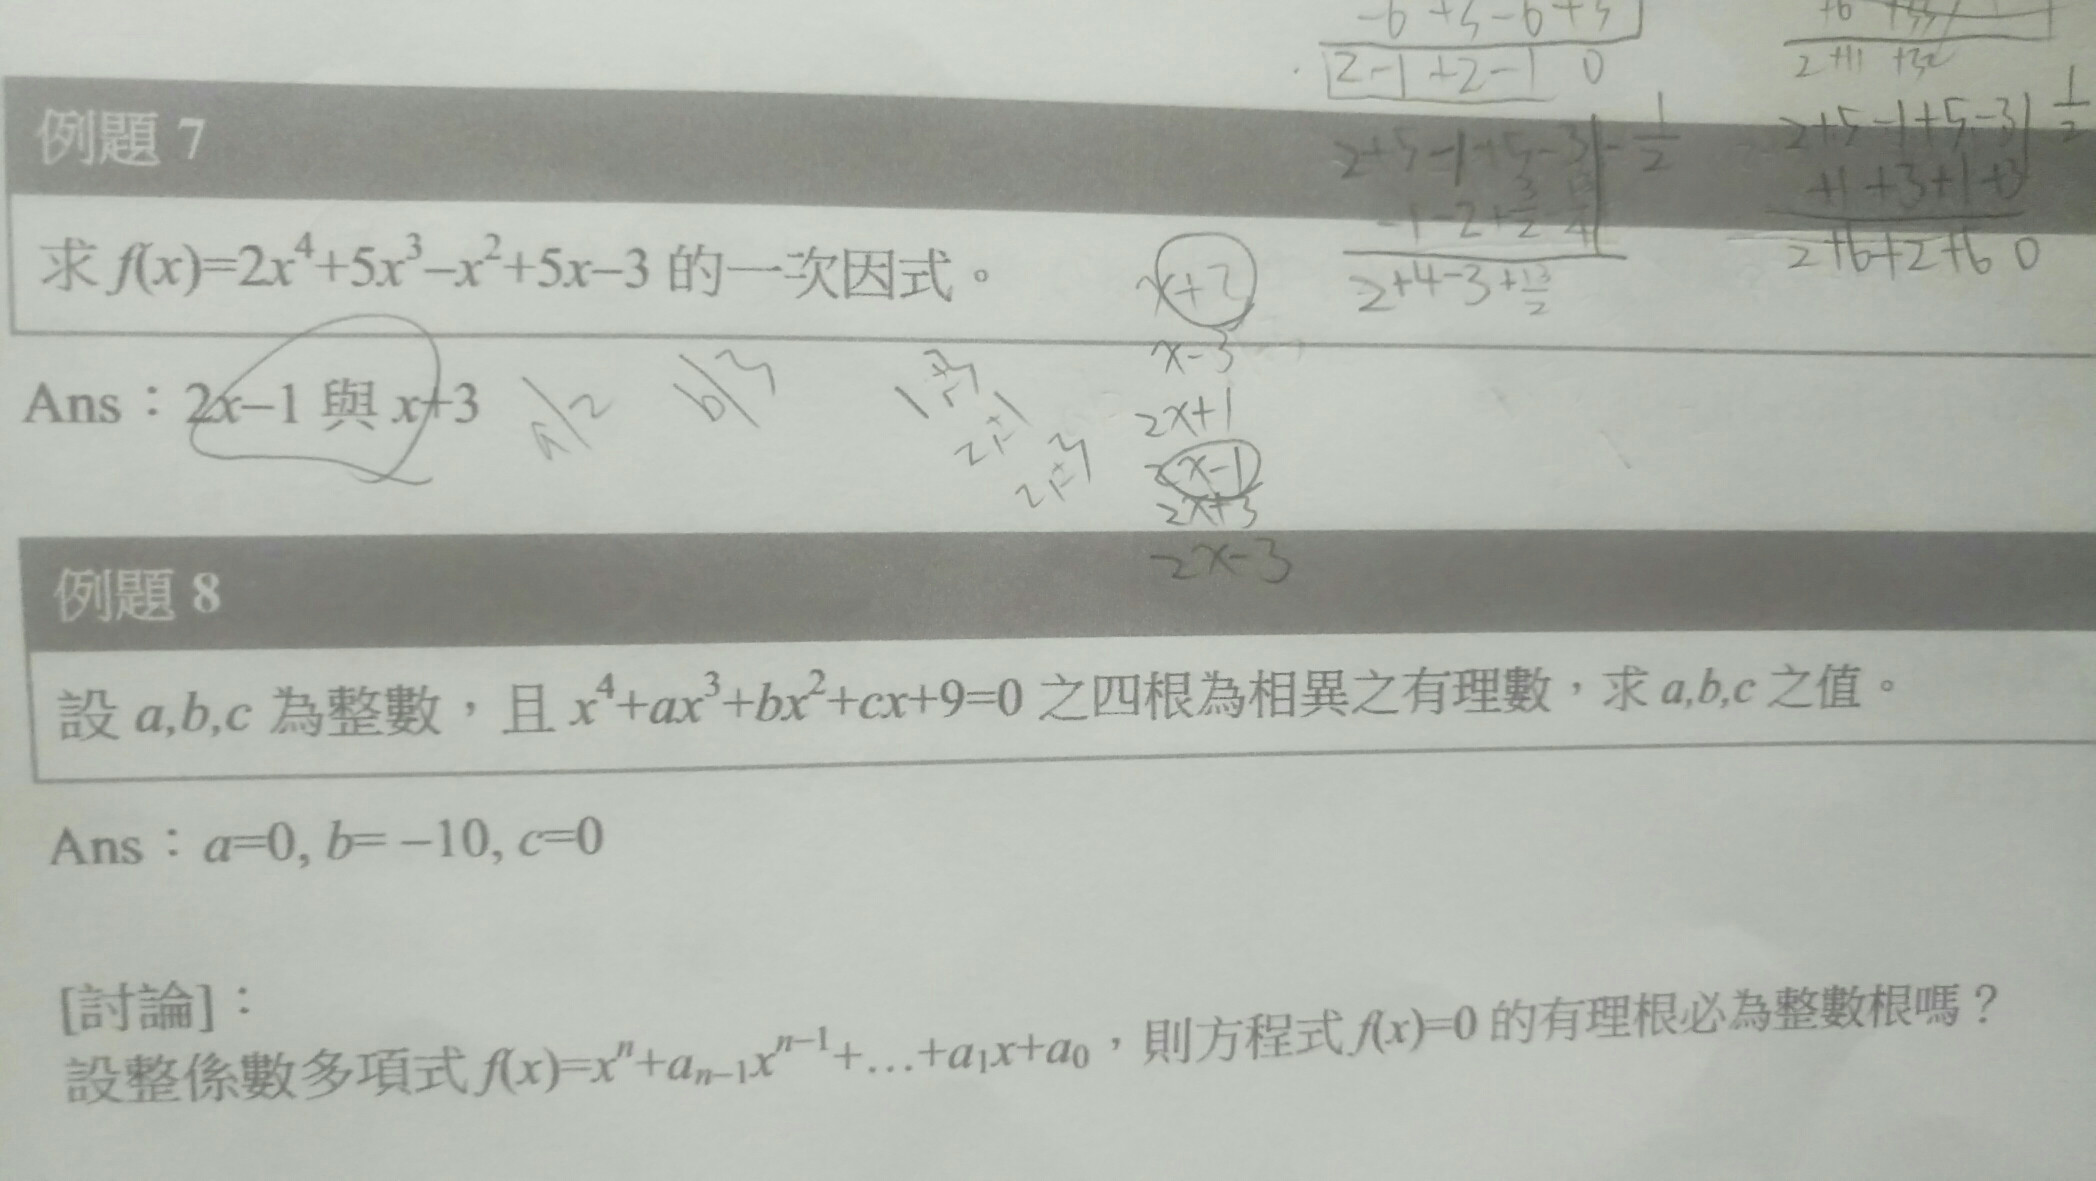 -6 +3 -6 +3
2 -1 +2 -1 0
2 +11 +32
例題 7
2+5-1+5-3 -1/2
2+5-1+5-3 1/2
+1+3+1+3
2+6+2+6 0
求 f(x)=2x⁴+5x³–x²+5x–3 的一次因式。
2+4-3+13/2
x-3
Ans：2x–1 與 x+3
a/2
b/3
2x+1
2x-1
2x+3
2x-3
例題 8
設 a,b,c 為整數，且 x⁴+ax³+bx²+cx+9=0 之四根為相異之有理數，求 a,b,c 之值。
Ans：a=0, b= –10, c=0
[討論]：
設整係數多項式 f(x)=xⁿ+aₙ₋₁xⁿ⁻¹+…+a₁x+a₀，則方程式 f(x)=0 的有理根必為整數根嗎？